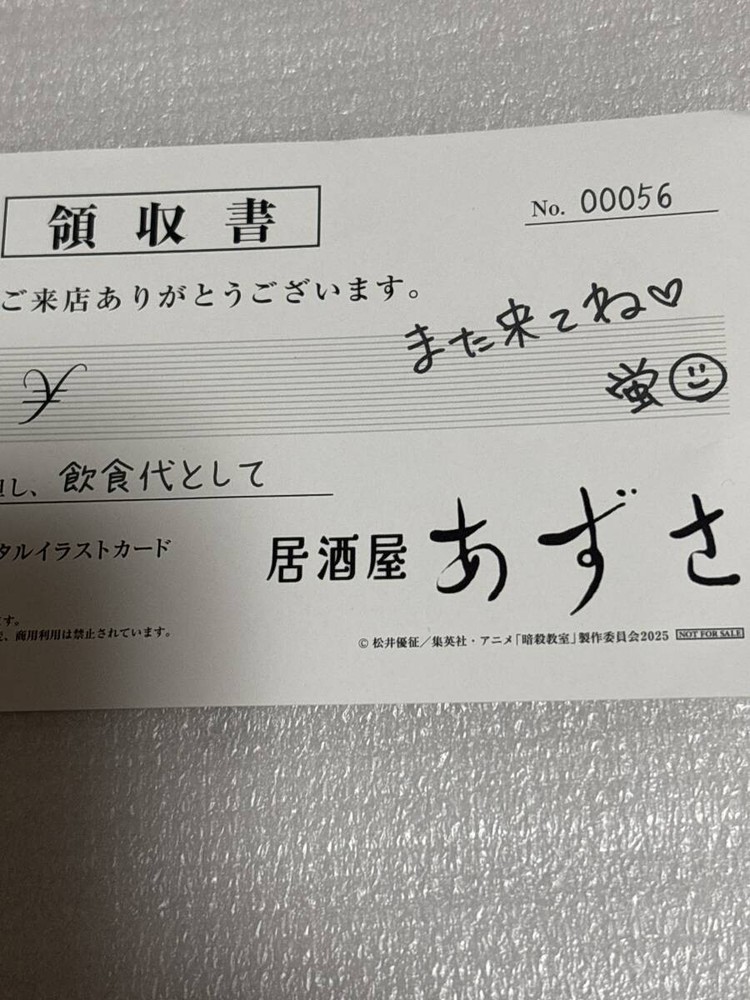 領収書
No. 00056
ご来店ありがとうございます。
また来てね♡
蛍
し、飲食代として
タルイラストカード
居酒屋 あずさ
す。
、商用利用は禁止されています。
© 松井優征／集英社・アニメ「暗殺教室」製作委員会2025 NOT FOR SALE